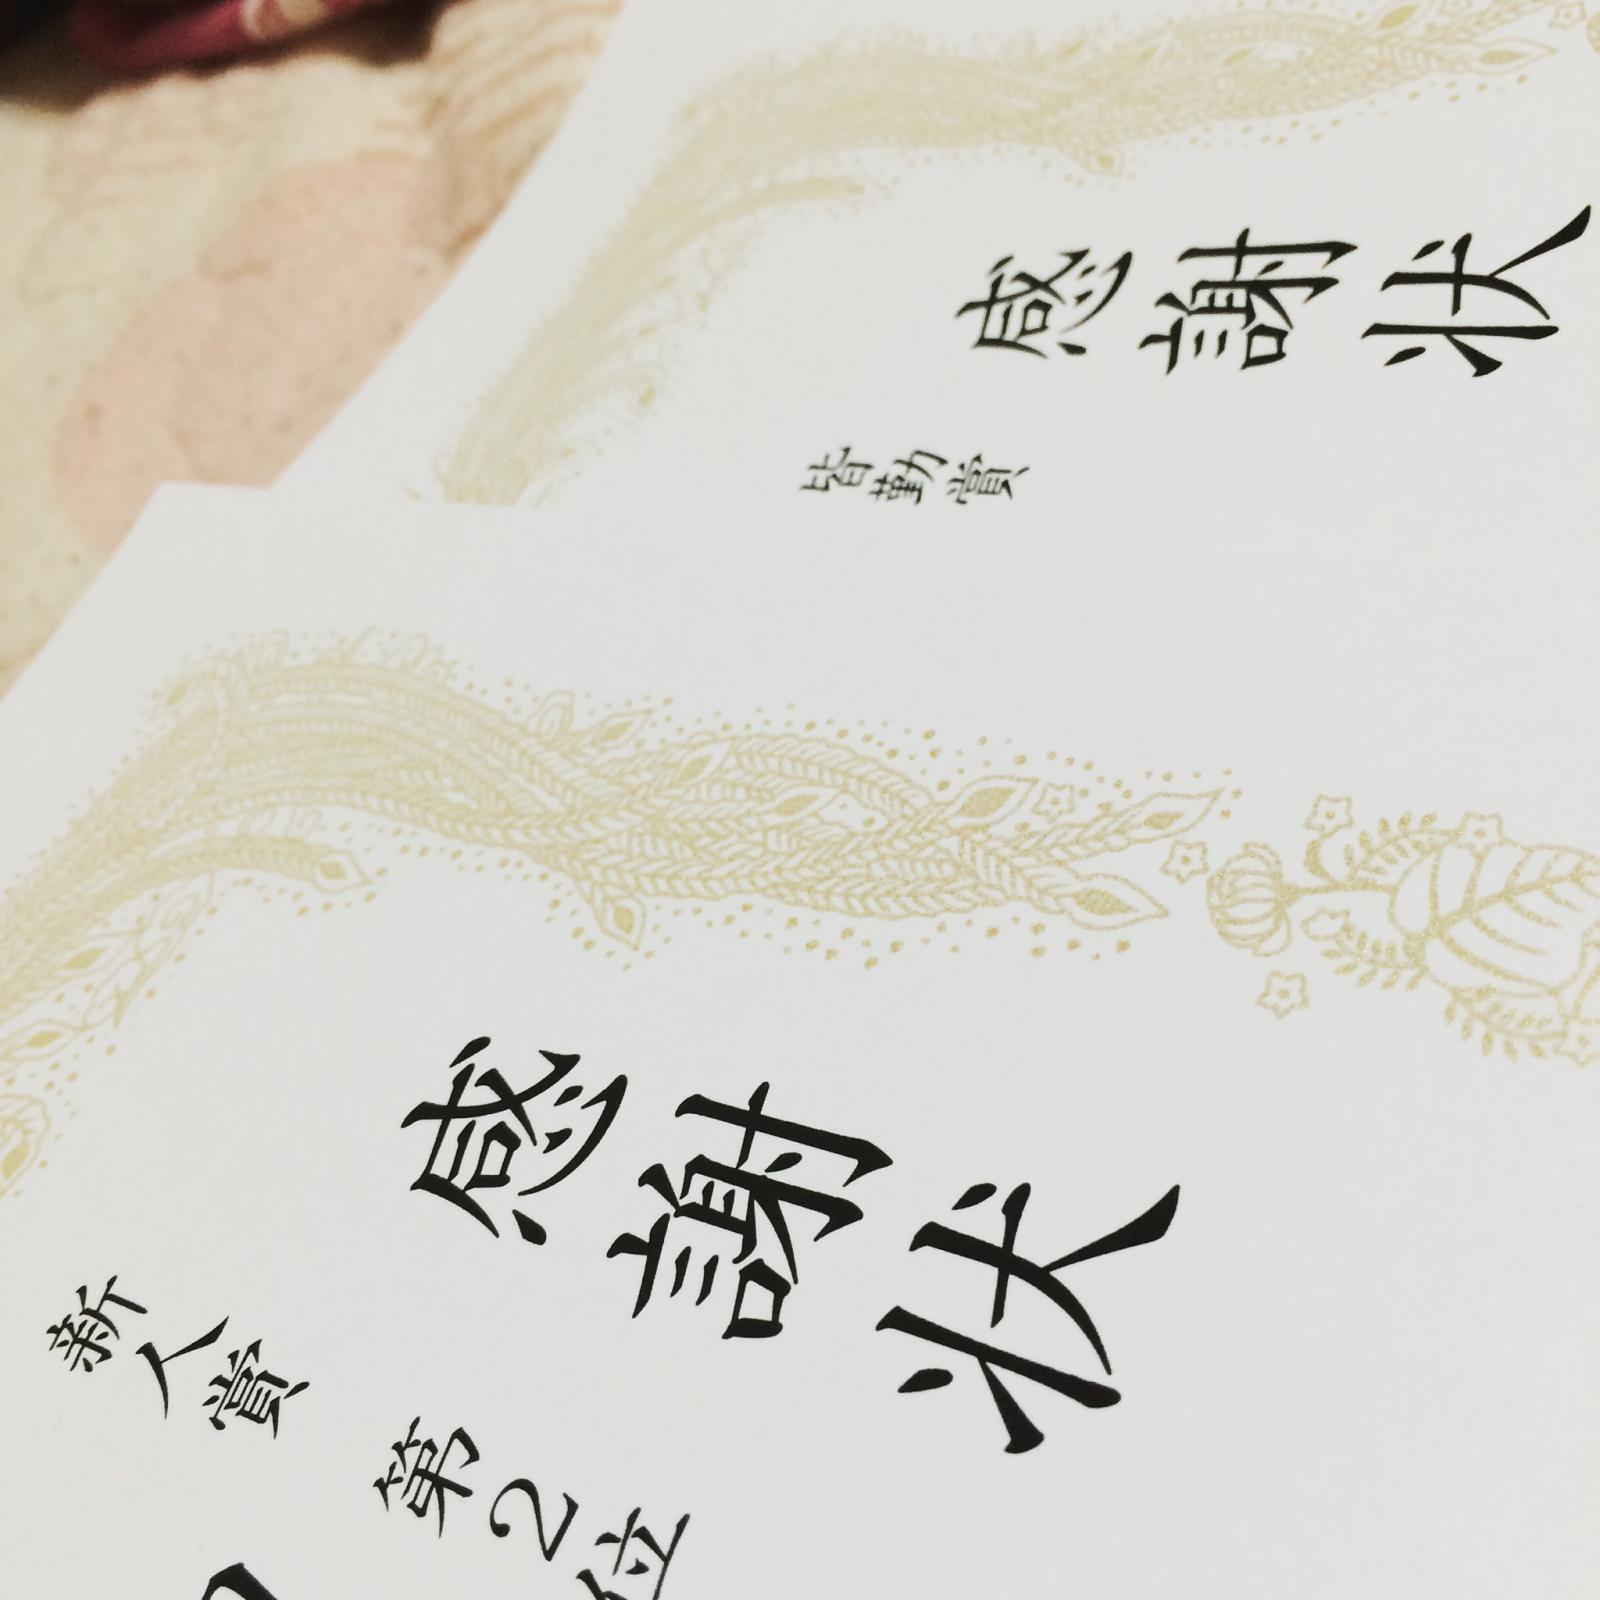 感謝状
皆勤賞
感謝状
新人賞 第2位